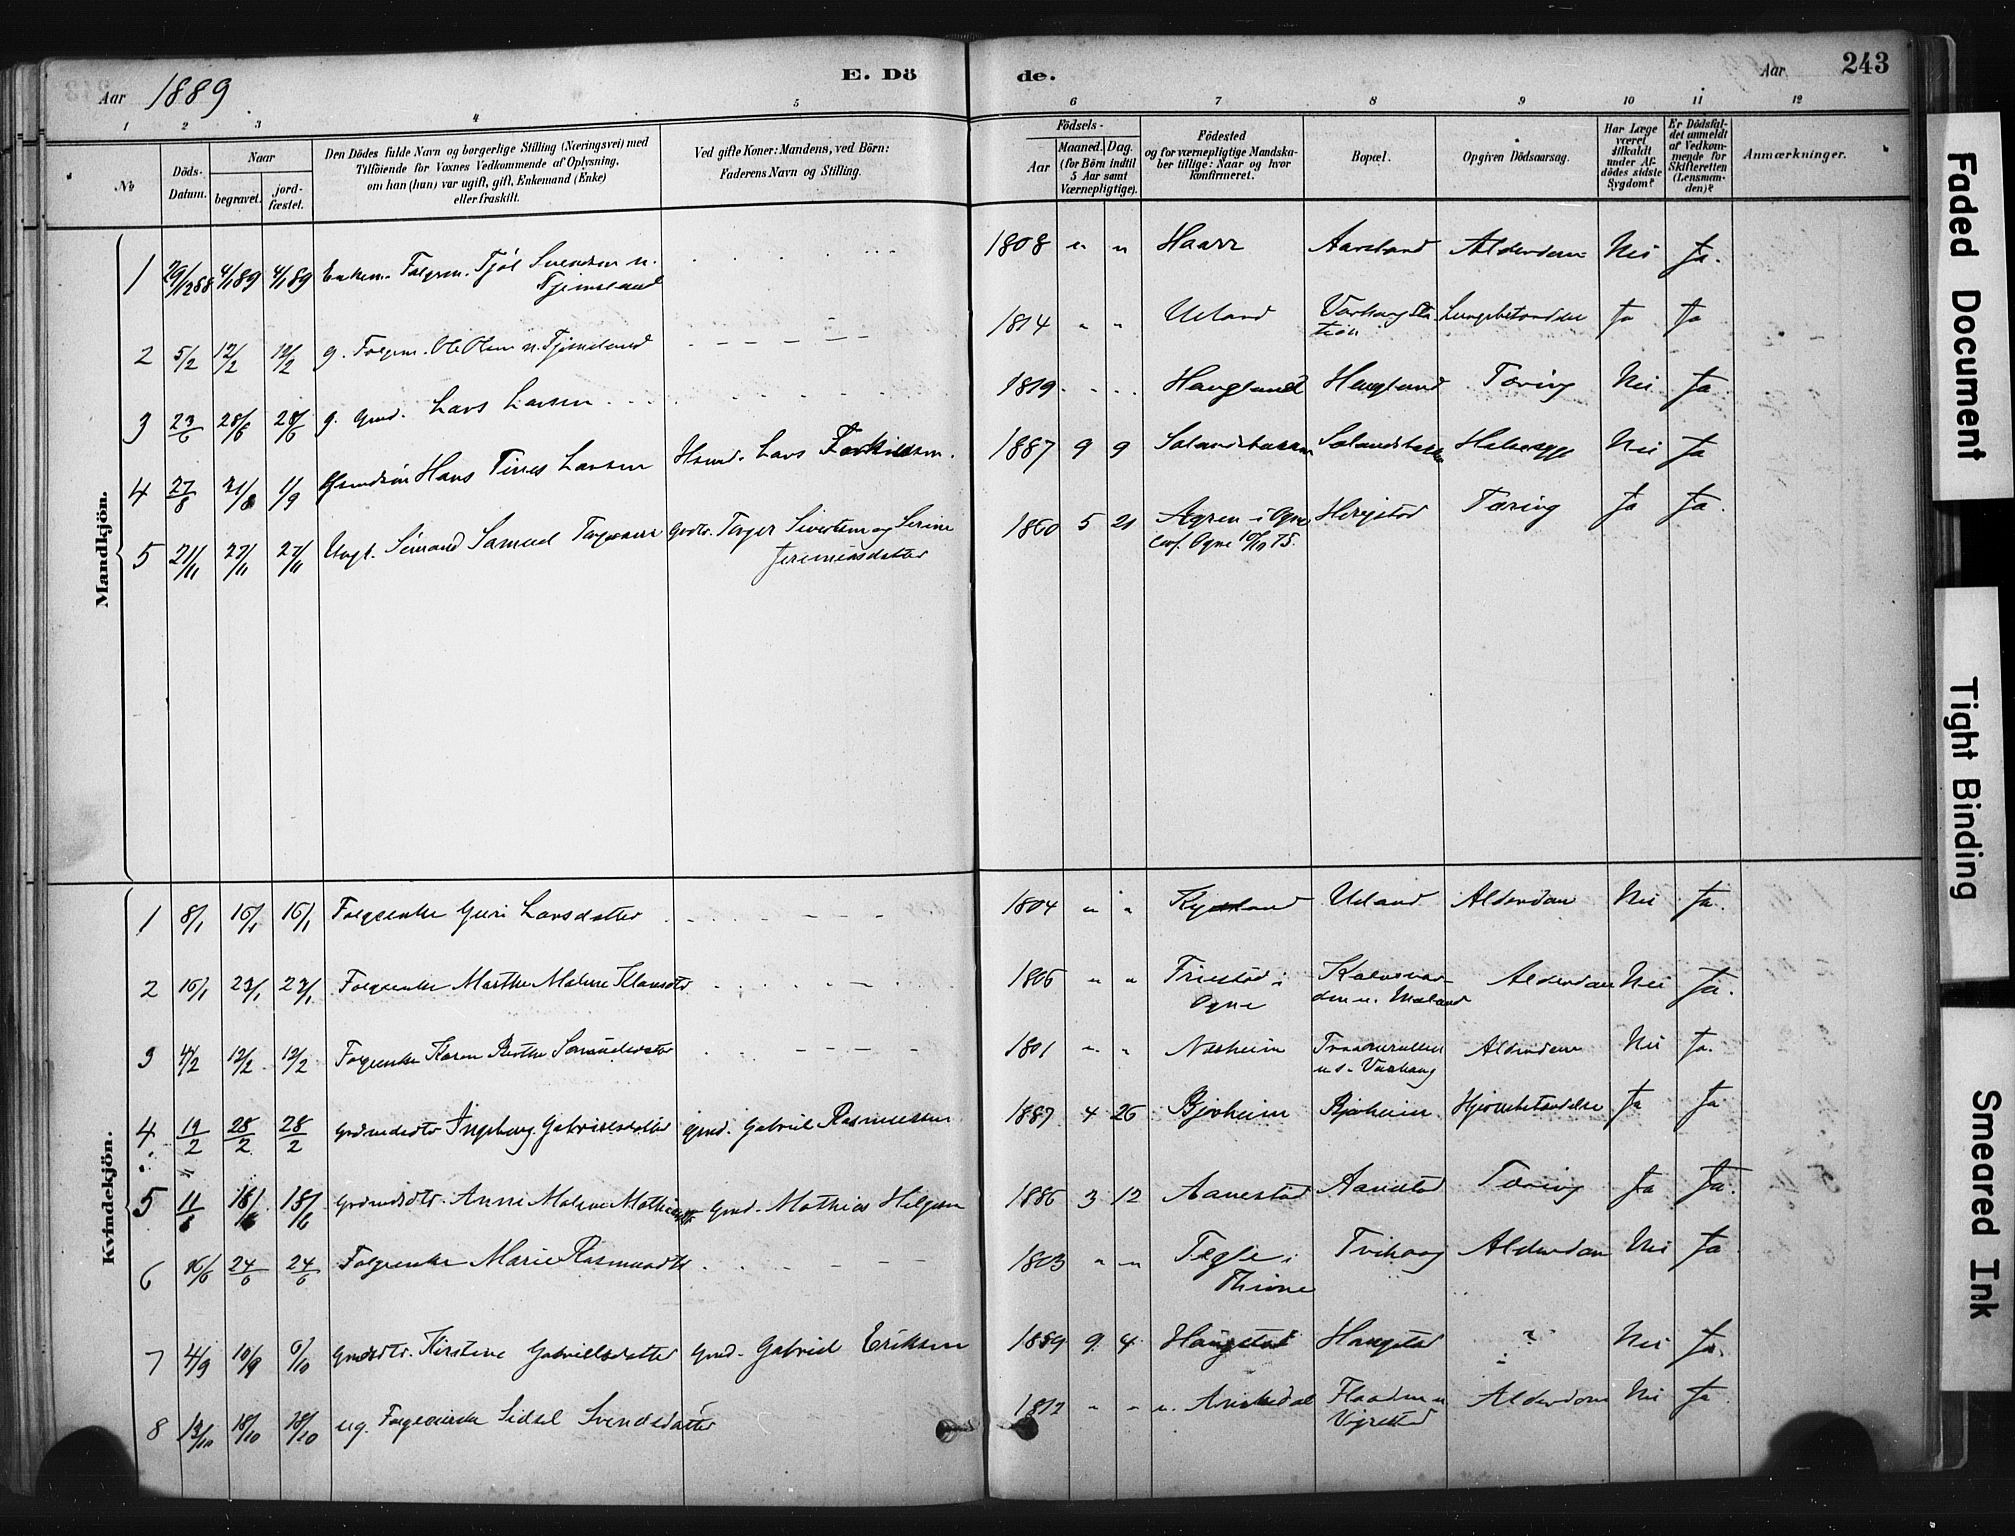 Aar 1889
E. Dö
de.
Aar
243
1 2 3 4 5 6 7 8 9 10 11 12
No
Döds-Datum.
Naar
begravet.
jord-fæstet.
Den Dödes fulde Navn og borgerlige Stilling (Næringsvei) med
Tilföiende for Voxnes Vedkommende af Oplysning,
om han (hun) var ugift, gift, Enkemand (Enke)
eller fraskilt.
Ved gifte Koner: Mandens, ved Börn:
Faderens Navn og Stilling.
Födsels-
Aar
Maaned. Dag.
(for Börn indtil
5 Aar samt
Værnepligtige).
Födested
og for værnepligtige Mandska-
ber tillige: Naar og hvor
konfirmeret.
Bopæl.
Opgiven Dödsaarsag.
Har Læge
været
tilkaldt
under Af-
dödes sidste
Sygdom?
Er Dödsfal-
det anmeldt
af Vedkom-
mende for
Skifteretten
(Lensman-
den)?
Anmærkninger.
Mandkjön.
1 29/12 88 4/1 89 4/1 89 Enkem. Folgem. Tjöl Svendsen u. Tjemsland 1808 " " Haar Aarsland Alderdom Nei Ja.
2 5/2 12/2 12/2 g. Folgem. Ole Olsen u. Tjemsland 1814 " " Ueland Varhoug Station Lungebetændelse Ja Ja
3 23/6 28/6 28/6 g. Gmd. Lars Larsen 1819 Haugland Haugland Tæring Nei Ja
4 27/8 31/8 1/9 Hans Tines Larsen Hsmd. Lars Torkildsen. 1887 9 9 Halssyge Nei Ja
5 21/11 27/11 27/11 Ungk. Simond Samuel Gmd. Torger Sivertsen og Serine Jeremiasdatter 1860 5 21 i Ogne Conf. Ogne 10/10 75. Tæring Ja Ja
Kvindekjön.
1 8/1 15/1 15/1 Folgeenke Guri Larsdatter 1804 " " Ueland Alderdom Nei Ja.
2 15/1 23/1 23/1 Folgeenke Marthe Malene 1806 " " Friestad i Ogne Alderdom Nei Ja.
3 4/2 12/2 12/2 Folgeenke Karen Berthe 1801 " " Næsheim u. s. Varhaug Alderdom Nei Ja.
4 19/2 28/2 28/2 Ingeborg Gabrielsdatter Gmd. Gabriel Rasmussen 1887 4 26 Bjorheim Bjorheim Hjernebetændelse Ja Ja
5 11/6 18/6 18/6 Anne Malene Gmd. Mathias Helgesen 1886 3 12 Aanestad Aanestad Tæring Ja Ja.
6 16/6 24/6 24/6 Folgeenke Marie Rasmusdtr 1803 " " i Thime Tvihaug Alderdom Nei Ja
7 4/9 10/9 6/10 Kirstine Gabrielsdatter Gmd. Gabriel Eriksen 1889 9 4 Haugstad Haugstad ? Nei Ja.
8 13/10 18/10 18/10 ug. Sidsel Svendsdatter 1812 " " Vigrestad Alderdom Nei Ja
Faded Document
Tight Binding
Smeared Ink